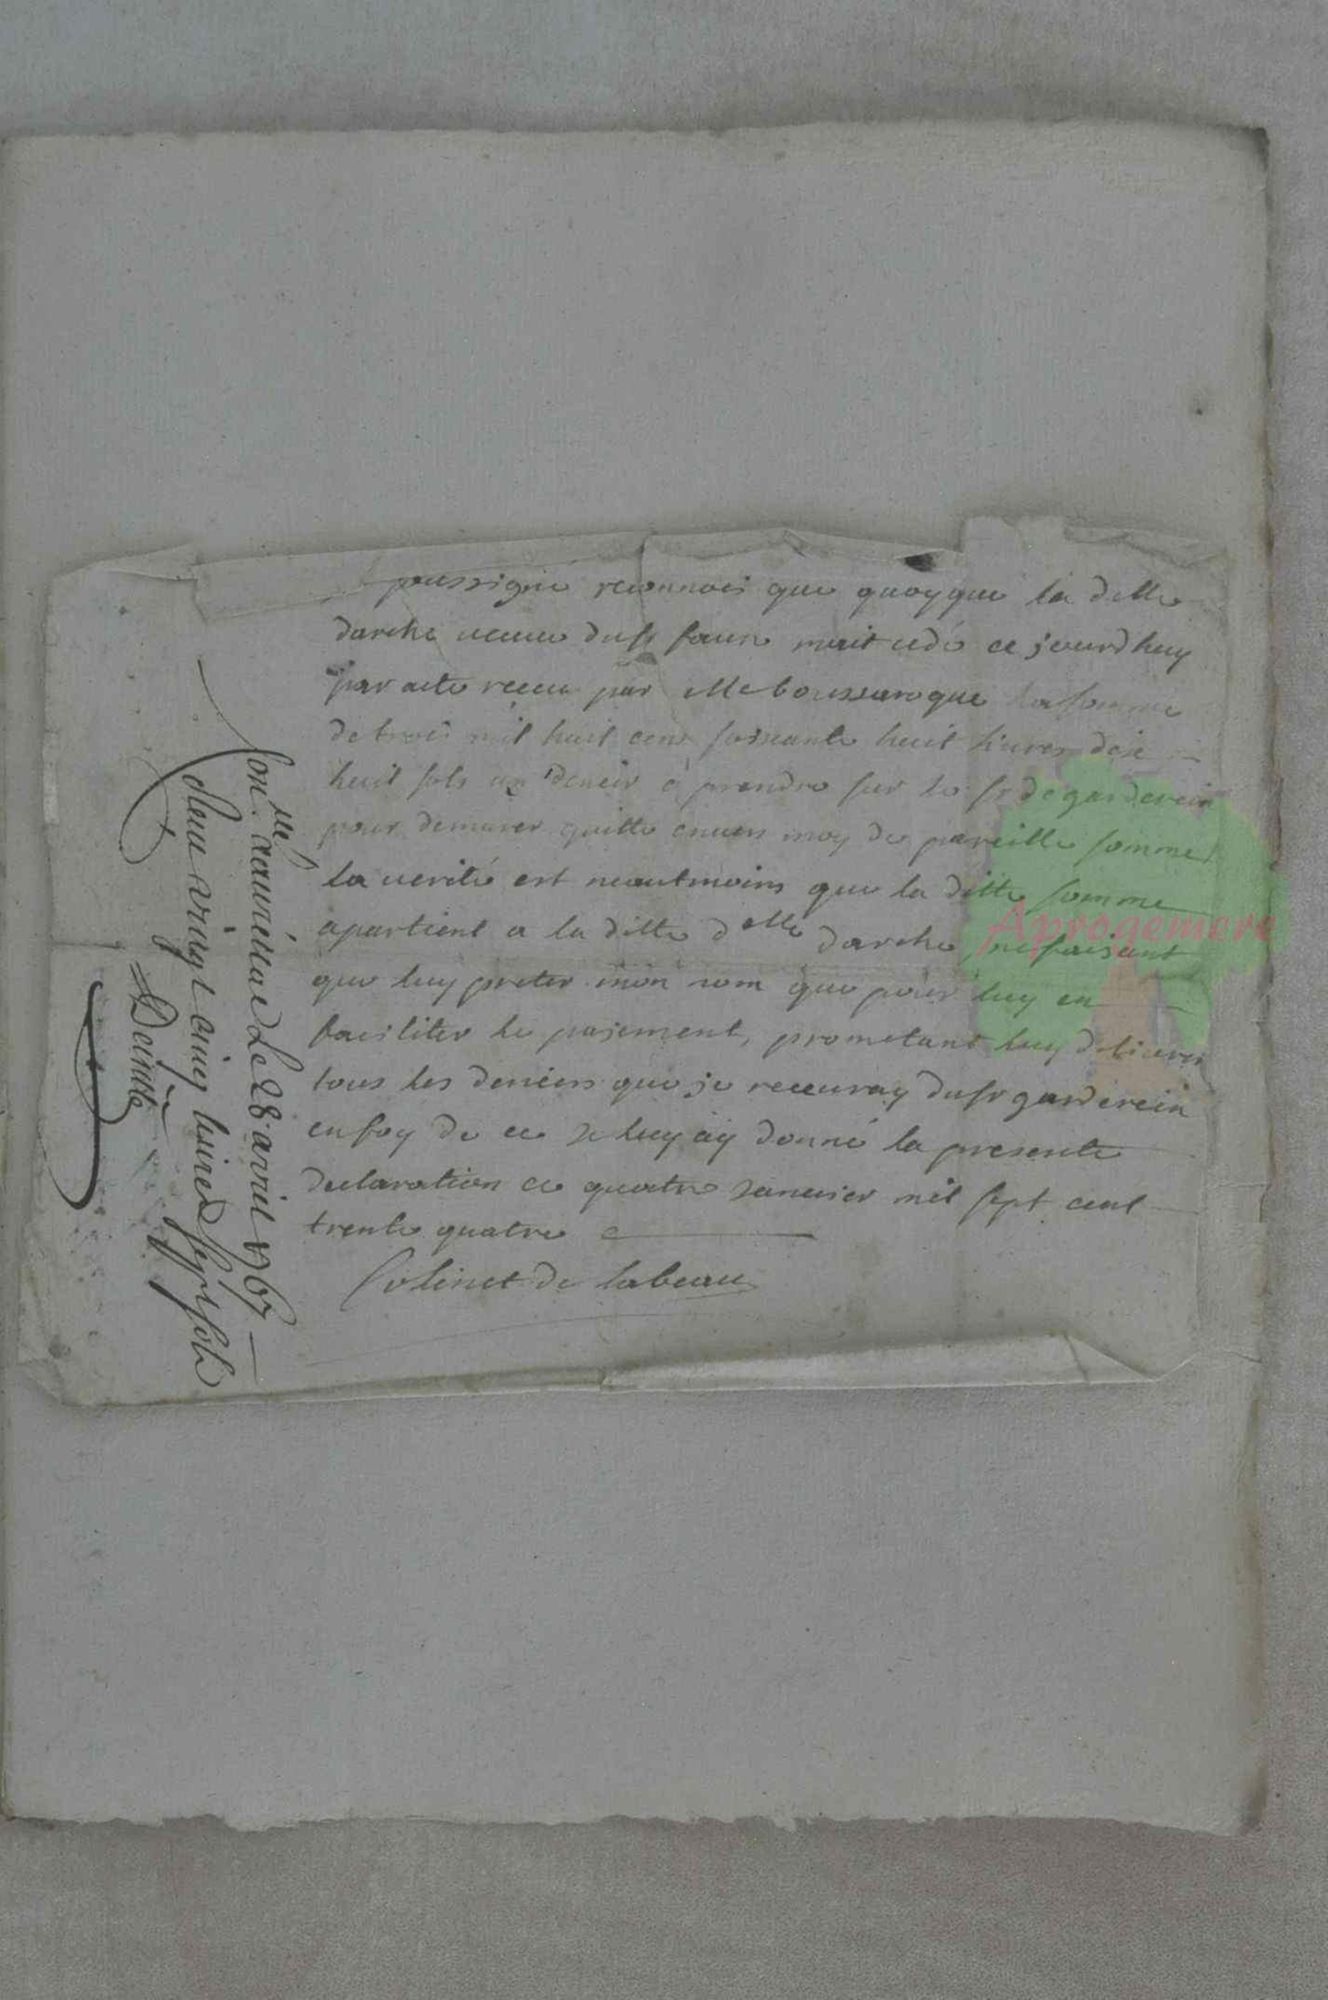 soussigné reconnois que quoyque la delle
darche veuve du sr faure mait cedé ce jourdhuy
par acte receu par Me boussaroque la somme
de trois mil huit cens soissante huit livres dix
huit sols un denier a prendre sur le sr de garderein
pour demurer quitte envers moy de pareille somme
la verité est neautmoins que la ditte somme
apartient a la ditte delle darche ne faisant
que luy preter mon nom que pour luy en
faciliter le paiement, prometant luy delivrer
tous les deniers que je recevray du sr garderein
en foy de ce Je luy ay donné la presente
declaration ce quatre Janvier mil sept cent
trente quatre
Colinet de labeau
Con.lle a aurillac Le 28 avril 1767
Reçu vingt cinq livres sept sols
Aprogemere